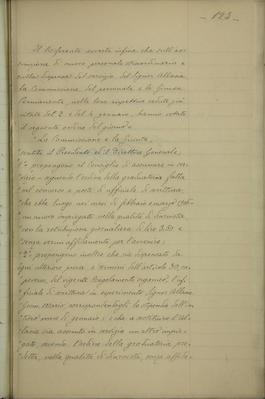 - 123 -
Il Presidente avverte infine che sull'as-
sunzione di nuovo personale straordinario e
sulla dispensa dal servizio del Signor Albano
la Commissione del personale e la Giunta
Permanente, nelle loro rispettive sedute più
citate del 2 e del 4 gennaio, hanno votato
il seguente ordine del giorno:
"La Commissione e la Giunta,
sentito il Presidente ed il Direttore Generale,
1° propongono al Consiglio di assumere in ser-
vizio - seguendo l'ordine della graduatoria fatta
nel concorso a posti di ufficiale di scrittura,
che ebbe luogo nei mesi di febbraio e marzo
un nuovo impiegato nella qualità di diurnista
con la retribuzione giornaliera di lire 3.50 e
senza verun affidamento per l'avvenire;
2° propongono inoltre che sia dispensato da
ogni ulteriore prova a termini dell'articolo 30,
del vigente Regolamento organico, l'uf-
ficiale di scrittura in esperimento Signor Albano
corrispondendogli lo stipendio dell'in-
tiero mese di gennaio; e che a sostituire l'Al-
bano sia assunto in servizio un altro impie-
gato, secondo l'ordine della graduatoria pre-
detta, nella qualità di diurnista, senza affida-